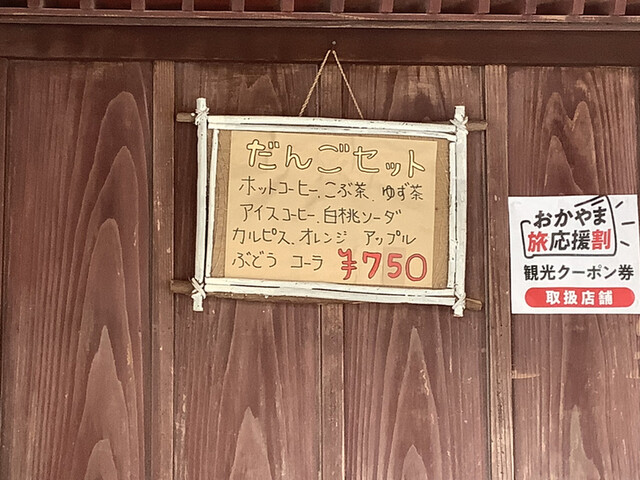 だんごセット
ホットコーヒー、こぶ茶、ゆず茶
アイスコーヒー、白桃ソーダ
カルピス、オレンジ アップル
ぶどう コーラ ¥750
おかやま
旅応援割
観光クーポン券
取扱店舗